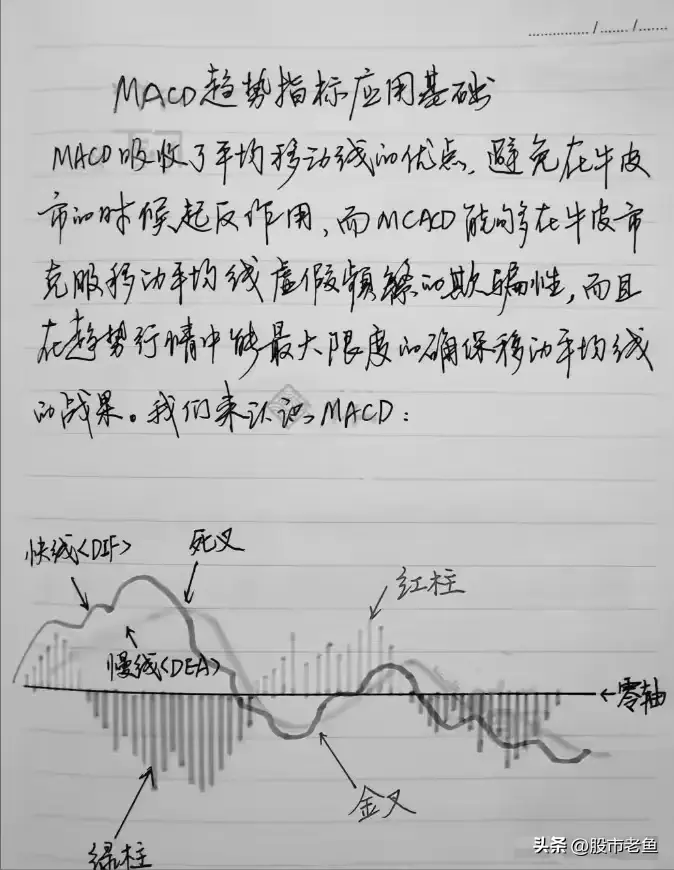 ……/……/……
MACD趋势指标应用基础
MACD吸收了平均移动线的优点,避免在牛皮
市的时候起反作用,而MCACD能够在牛皮市
克服移动平均线虚假频繁的欺骗性,而且
在趋势行情中能最大限度的确保移动平均线
的战果。我们来认识MACD:
快线<DIF>
死叉
红柱
慢线<DEA>
←零轴
金叉
绿柱
头条 @股市老鱼